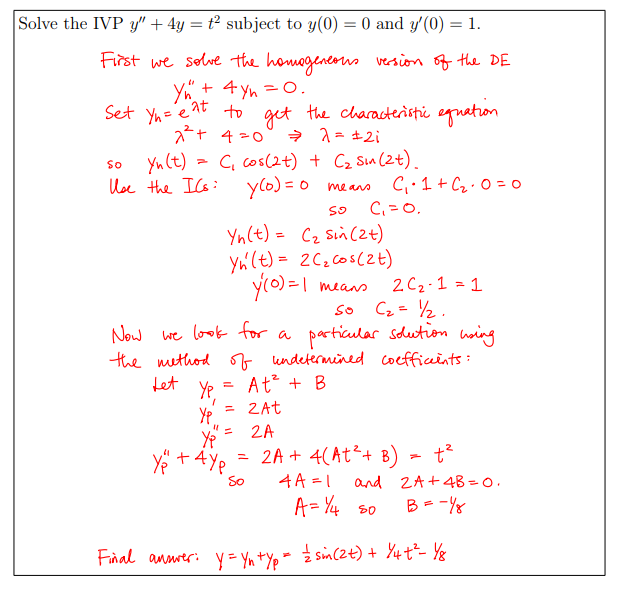 Solve the IVP y″ + 4y = t² subject to y(0) = 0 and y′(0) = 1.
First we solve the homogeneous version of the DE
yₕ″ + 4yₕ = 0.
Set yₕ = e^{λt} to get the characteristic equation
λ² + 4 = 0 ⇒ λ = ±2i
so yₕ(t) = C₁ cos(2t) + C₂ sin(2t).
Use the ICs: y(0) = 0 means C₁·1 + C₂·0 = 0
so C₁ = 0.
yₕ(t) = C₂ sin(2t)
yₕ′(t) = 2C₂ cos(2t)
y′(0) = 1 means 2C₂·1 = 1
so C₂ = ½.
Now we look for a particular solution using
the method of undetermined coefficients:
Let yₚ = At² + B
yₚ′ = 2At
yₚ″ = 2A
yₚ″ + 4yₚ = 2A + 4(At² + B) = t²
so 4A = 1 and 2A + 4B = 0.
A = ¼ so B = -⅛
Final answer: y = yₕ + yₚ = ½ sin(2t) + ¼t² - ⅛